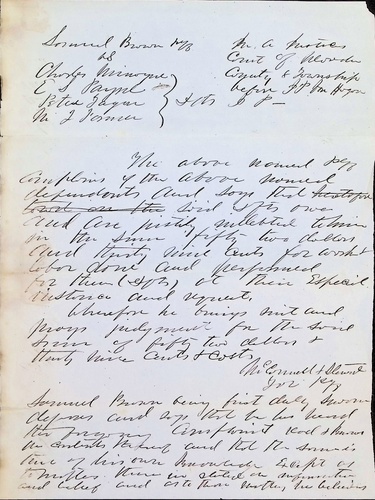 Samuel Brown Plff
vs
Charles
C S Payne
Peter
M J } Dfts
In a Justices
Court of
County & Township
before J P
J P
The above named Plff
complains of the above named
defendants and says that
said dfts owe
and are justly indebted to him
in the sum fifty two dollars
and thirty nine cents for work &
labor done and performed
for them (dfts) at their Especial
instance and request,
Wherefore he brings suit and
prays judgment for the said
sum of fifty two dollars &
thirty nine cents & costs
McConnell &
for Plff
Samuel Brown being first duly sworn
deposes and says that he has heard
the foregoing Complaint read & knows
the contents thereof and that the same is
true of his own knowledge except as
to matters therein stated on information
and belief and as to those matters he believes